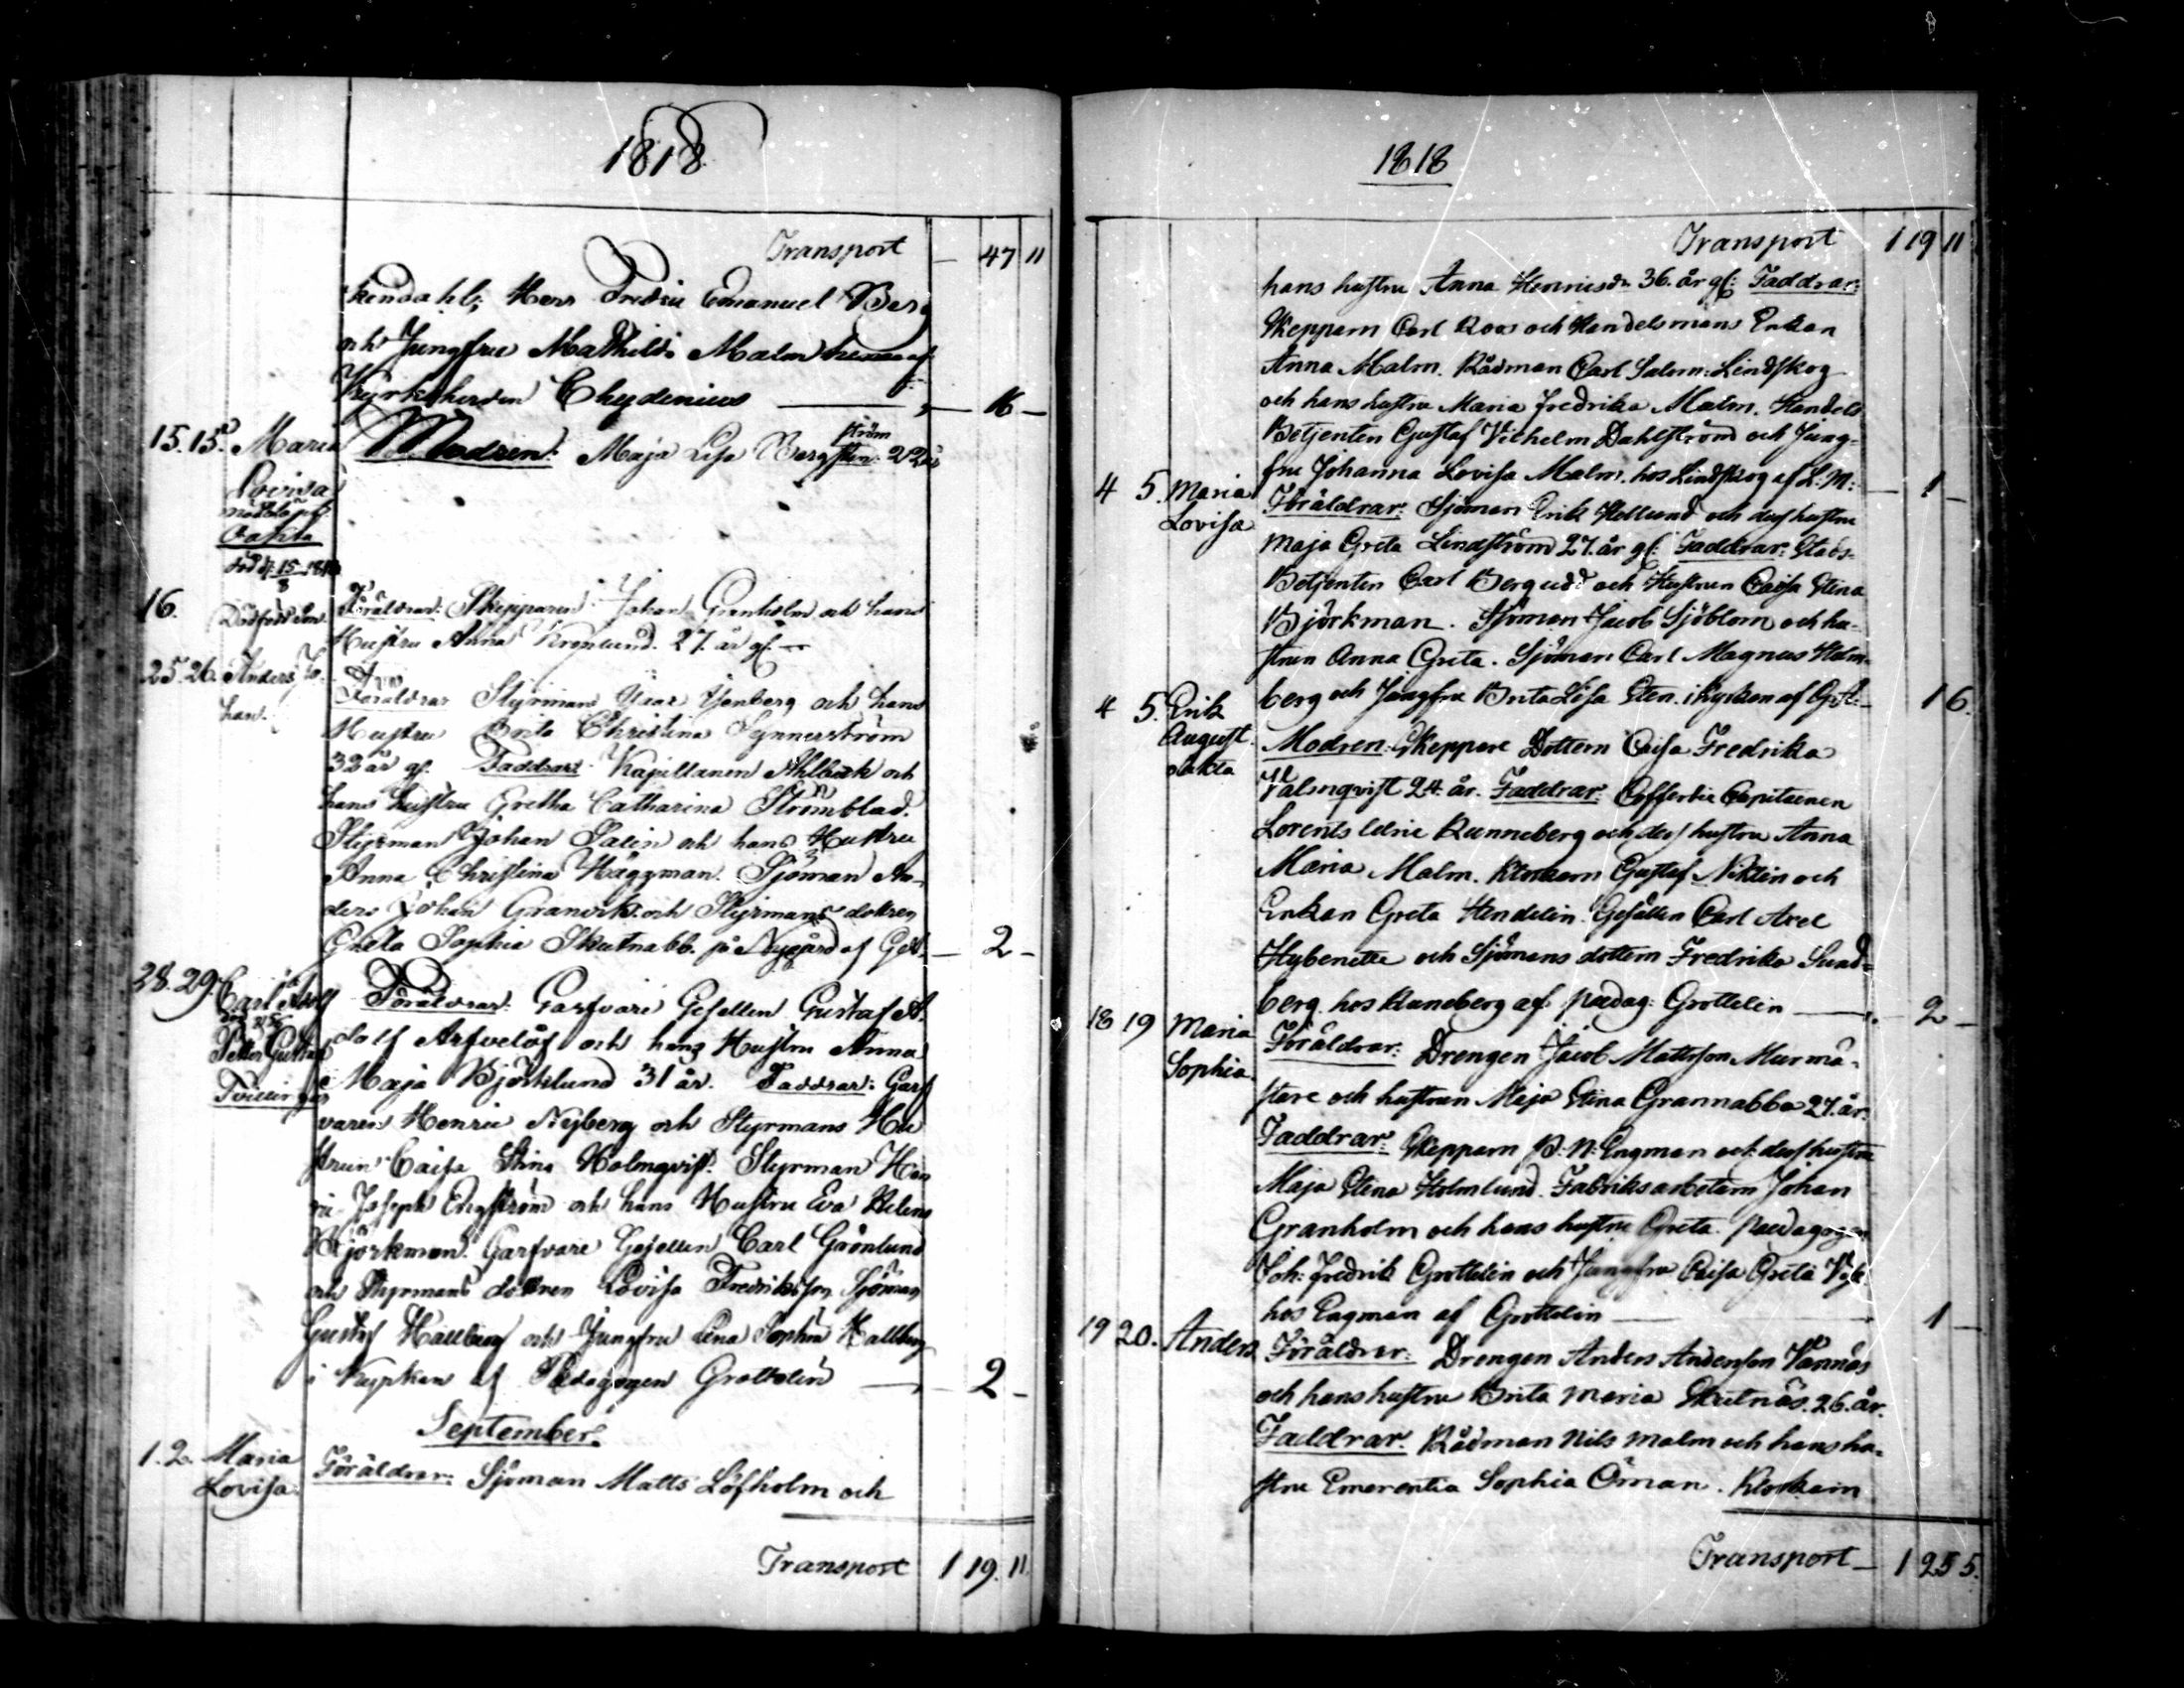 1818
Transport — 47 11
kendahl; Herr Fredric Emanuel Berg
och Jungfru Mathilda Malm
Kyrkoherden Chydenius — 16 —
15. 15. Maria Modren: Maja Lisa Bergström 22 år
Lovisa
oäkta
född 15/8
16. Dödfödd Son. Föräldrar: Skepparen Johan Granholm och hans
Hustru Anna Kronlund. 27. år gl.
25. 26. Anders Jo- Föräldrar Styrmans Isac Isenberg och hans
han. Hustru Brita Christina Synnerström
32 år gl. Faddrar: Kapellanen Ahlbäck och
hans hustru Gretha Catharina Strömblad.
Styrman Johan Salin och hans Hustru
Anna Christina Häggman. Sjöman An-
ders Johan Granvik och Styrmans dottren
Greta Sophia Skutnabb. på Nygård af Gst. — 2 —
28. 29. Carl Adolf Föräldrar: Garfvare Gesellen Gustaf A-
Petter Gustaf dolf Arfvelöf och hans Hustru Anna
Tvillingar Maja Björklund 31 år. Faddrar: Garf
varen Henric Nyberg och Styrmans Hu
strun Caisa Stina Holmqvist. Styrman Hen
ric Joseph Engström och hans Hustru Eva Helena
Björkman. Garfvare Gesellen Carl Grönlund
och Styrmans dottren Lovisa Fredriksson Sjöman
Gustaf Hallberg och Jungfru Lena Sophia Hallberg
i Kyrkan af Pædagogen Grottelin — 2 —
September.
1. 2. Maria Föräldrar: Sjöman Matts Löfholm och
Lovisa.
Transport 1 19. 11.
1818
Transport 1 19 11
hans hustru Anna Henricsdr. 36. år gl: Faddrar:
Skeppern Carl Roos och Handelsmans Enkan
Anna Malm. Rådman Carl Salom: Lindskog
och hans hustru Maria Fredrika Malm. Handels
Betjenten Gustaf Vilhelm Dahlström och Jung-
fru Johanna Lovisa Malm. hos Lindskog af L. M: — 1 —
4 5. Maria Föräldrar: Sjöman Erik Hellund och dess hustru
Lovisa Maja Greta Lindström 27. år gl: Faddrar: Stads-
Betjenten Carl Bergudd och Hustrun Caisa Stina
Björkman. Sjöman Jacob Sjöblom och hu-
strun Anna Greta. Sjöman Carl Magnus Holm-
berg och Jungfru Brita Lisa Sten. i Kyrkan af Gst: — 16.
4 5. Erik Modren: Skeppare Dottern Caisa Fredrika
August. Valmqvist 24. år. Faddrar: Cofferdie Capitaenen
oäkta Lorents Ulric Runneberg och dess hustru Anna
Maria Malm. Klockarn Gustaf Niklin och
Enkan Greta Hendelin. Gesällen Carl Axel
Hybenette och Sjömans dottern Fredrika Sund-
berg. hos Runeberg af pædag: Grottelin — 2 —
18 19 Maria Föräldrar: Drengen Jacob Mattsson Murmä-
Sophia. stare och hustrun Maja Stina Grannabba 27. år.
Faddrar: Skeppern P: N: Engman och dess hustru
Maja Stina Holmlund. Fabriksarbetarn Johan
Granholm och hans hustru Greta. Pædagogen
Joh: Fredrik Grottelin och Jungfru Caisa Greta
hos Engman af Grottelin — 1 —
19 20. Anders Föräldrar: Drengen Anders Andersson Vännäs
och hans hustru Brita Maria Skutnäs. 26. år.
Faddrar: Rådman Nils Malm och hans hu-
stru Emerentia Sophia Öman. Klockarn
Transport — 1 25 5.